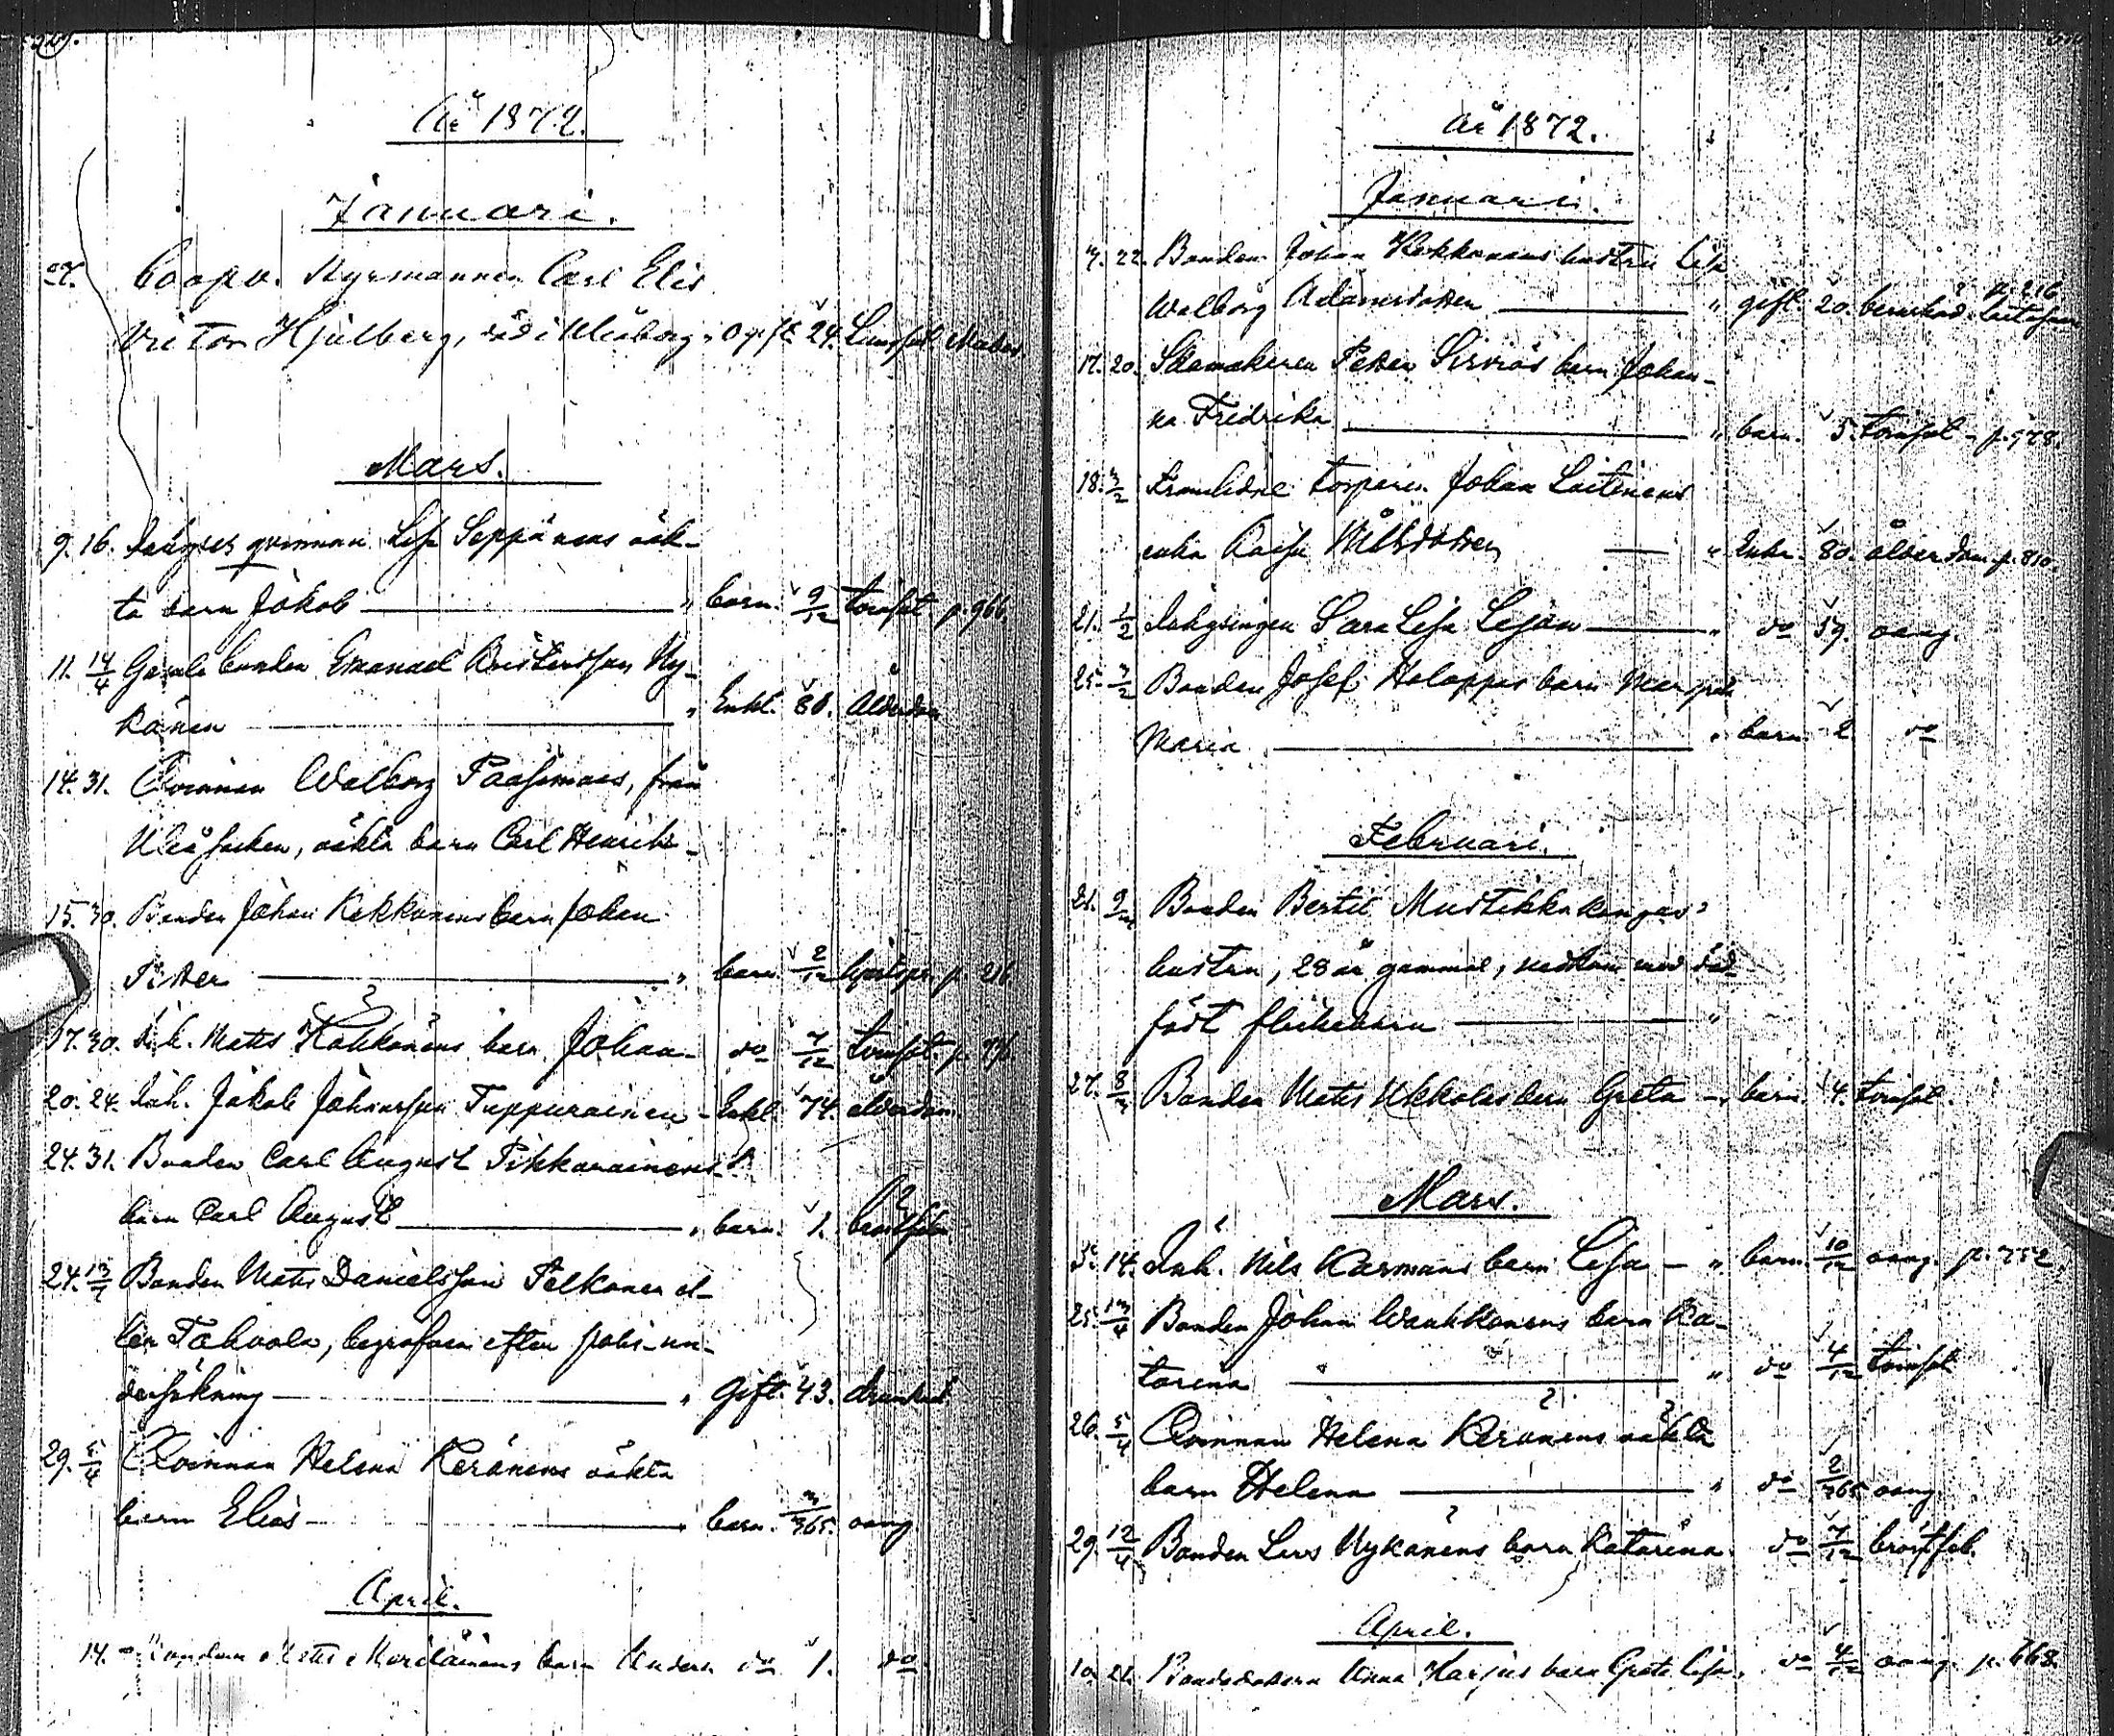 År 1872.
Januari.
Coopv. Styrmannen Carl Elis
Victor Hjelberg, död i Uleåborg, Ogift. 24. Lungsot
Mars.
9. 16. Inhyses qvinnan Lisa Seppänens oäk-
ta barn Jakob — " barn. 9/12 torrsot p. 966.
11. 14/4 Gamle bonden Emanuel Kristersson Ny-
känen — " Enkl. 81. Ålderdom
14. 31. Qvinnan Walborg Paasimaas, från
Uleå socken, oäkta barn Carl Henrik -
15. 30. Bonden Johan Kekkonens barn Johan
Petter — " barn. 2/12 p. 216.
17. 30. Inh. Mats Kokkonens barn Johan - do 7/12 torrsot. p.
20. 24. Inh. Jakob Johansson Tuppurainen - Enkl. 74. ålderdom
24. 31. Bonden Carl August Pikkarainens
barn Carl August — " barn. 1. bröstfeb.
24. Bonden Mats Danielsson Pelkonen el-
ler Tahvola, begrafven efter polis-un-
dersökning — " Gift. 43. drunknad
29. 5/4 Qvinnan Helena Keränens oäkta
barn Elias — " barn. 3/365. oang
April.
14. barn Anders do 1. do
År 1872.
Januari.
7. 22. Bonden Johan Kekkonens hustru Lisa p. 216
Walborg Adamsdotter — " gift. 20. barnbörd.
17. 20. Skomakaren Petter Sirviös barn Johan-
na Fredrika — " barn. 5. torrsot - p. 578.
18. 3/2 Framlidne torparen Johan Laitinens
enka Kaisa Nilsdotter — " Enka. 80. ålderdom p. 810.
21. 1/2 Inhysingen Sara Lisa Lejon — " do 59. oang.
25. 3/2 Bonden Josef Holappas barn Margreta
Maria — " barn 2 do
Februari.
21. 9/3 Bonden Bertil Mustikkakangas'
hustru, 28 år gammal, nedkom med död-
födt flickebarn — "
27. 8/3 Bonden Mats Ukkolas barn Greta — " barn 4. torrsot.
Mars.
3. 14. Inh. Nils Karmans barn Lisa — " barn. 10/12 oang. p. 752
25. 13/4 Bonden Johan Wauhkonens barn Ka-
tarina — " do 4/12 torrsot
26. 5/4 Qvinnan Helena Keränens oäkta
barn Helena — " do 2/365 oang.
29. 12/4 Bonden Lars Nykänens barn Katarina do 7/12 bröstfeb.
April.
10. 21. Bondedottern Anna Karjus barn Greta Lisa. do 4/12 oang. p. 668.